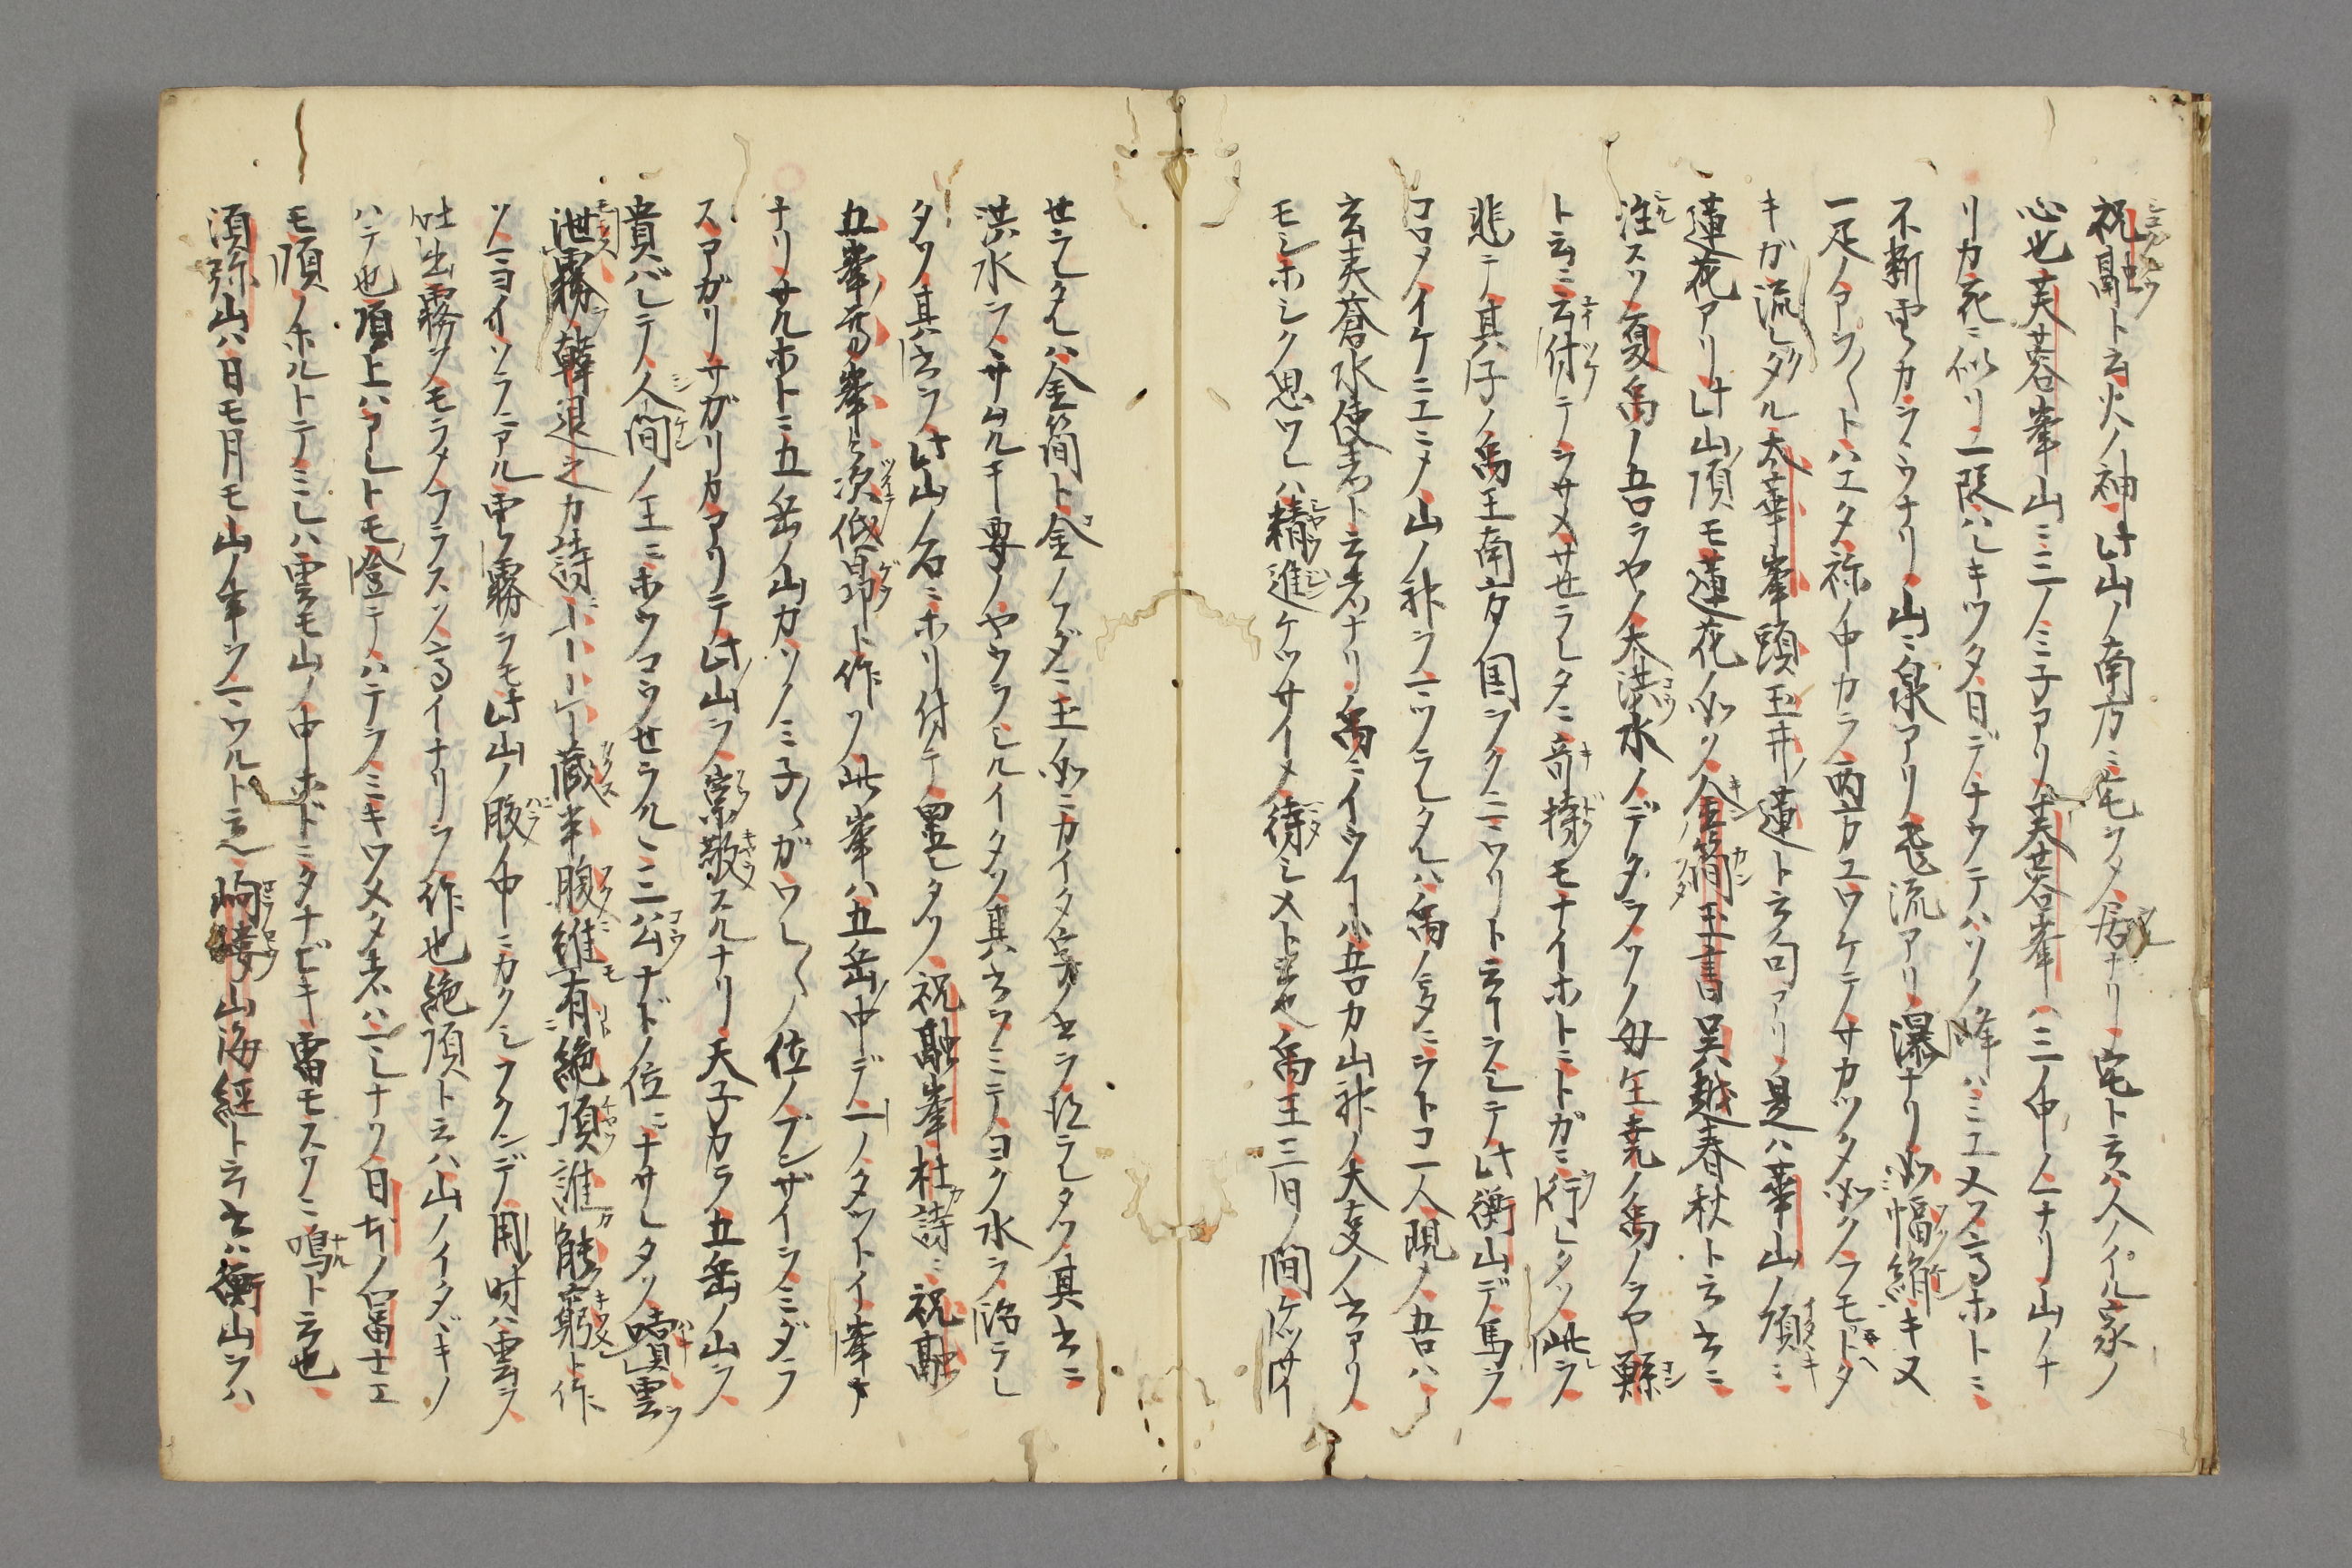 祝融ト云火ノ神此山ノ南方ニ宅ヲメ居ナリ宅ト云ハ人ノイル家ノ
心也芙蓉峯山ニ三ノミ子アリ芙蓉峯ハ三ノ中ノ一ナリ山ノナ
リカ花ニ似リ一段ハレキツタ日デナウテハソノ峰ハミエヌソ高ホトニ
不断雲カラウナリ山ニ泉アリ飛流アリ瀑ナリ如幅絹キヌ
一疋ノアシ〱トハエタ祢ノ中カラ両方エワケテサカツタ如クラモトタ
キガ流レタル太華峯頭玉井蓮ト云句アリ是ハ華山ノ頂ニ
蓮花アリ此山頂モ蓮花ノ如ソ金簡玉書呉越春秋ト云書ニ
注スソ夏禹ノ吾ヲヤノ大洪水ノデタラツソ毋ケ王堯ノ禹ノヲヤ鯀
ト云ニ云付テヲサメサせラレタニ奇特モナイホトニトガニ行レタソ此ヲ
悲テ其子ノ禹王南方ノ国ヲクニウリト云ヲシテ此衡山デ馬ヲ
コロメイケニエニメ山ノ神ヲマツラレタレハ禹ノ夢ニヲトコ一人現メ吾ハ
玄夷蒼水使者ト云者ナリ禹ニイツワハ吾カ山神ノ大文ノ書アリ
モシホシク思ワレハ精進ケツサイメ待シメト云也禹王三日ノ間ケツサイ
せラレタレハ金簡ト金ノフダニ玉如ニカイタ字ノ書ヲ得ラレタソ其書ニ
洪水ヲヲサムルキ尊ノヤウヲシルイタソ其書ヲミテヨク水ヲ治ラレ
タソ其書ヲ此山ノ石ニホリ付テ置レタソ祝融峯杜詩ニ祝融
五峯高峯々次低昂ト作ソ此峯ハ五岳中デ一ノタツトイ峯
ナリサルホトニ五岳ノ山カソノミ子〱ガワレ〱ノ位ノブンザイヲミダラ
スアガリサガリカアリテ此山ヲ崇敬スルナリ天子カラ五岳ノ山ヲ
貴バレテ人間ノ王ニホウコウせラルヽ三公ナドノ位ニナサレタソ噴雲
泄霧韓退之カ詩ニ噴雲泄霧蔵半腹雖有絶頂誰能窮ト作
ソツヨイソラニアル雲霧ヲモ此山ノ腹ノ中ニカクシフクンデ用時ハ雲ヲ
吐出霧ヲモラメフラスソ高イナリヲ作也絶頂ト云ハ山ノイタヾキノ
ハテ也頂上ハアレトモ登テハテヲミキワメタ者ハマレナリ日本ノ冨士エ
モ頂ノホルトテミレハ雲モ山ノ中ホドニタナビキ雷モスソニ鳴ト云也
須弥山ハ日モ月モ山ノ半ツマワルト云ソ岣嶁山海経ト云書ハ衡山ヲハ